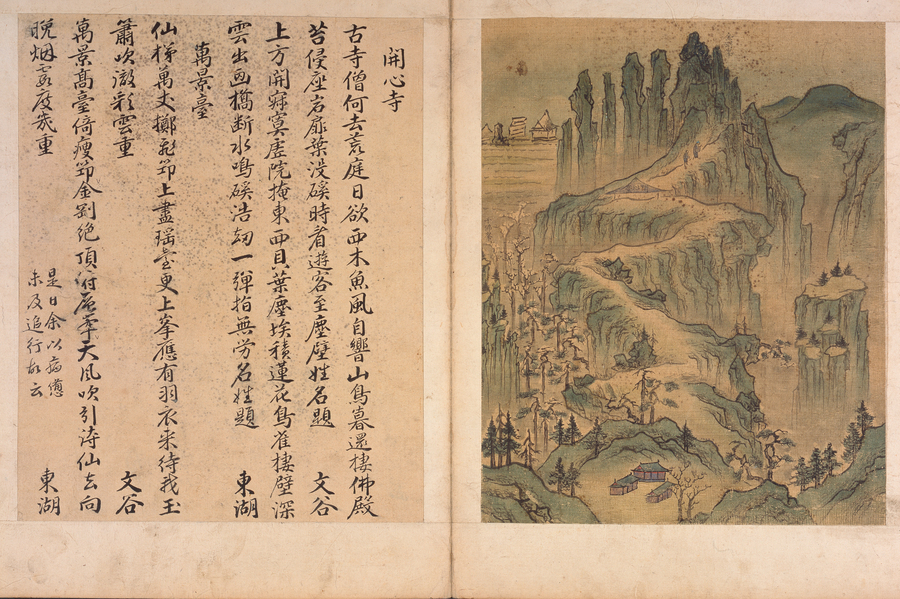 開心寺
古寺僧何去荒庭日欲西木魚風自響山鳥暮還棲佛殿
苔侵座岩扉葉没磎時看遊客至塵壁姓名題
文谷
上方開寂寞虛院掩東西貝葉塵埃積蓮花鳥雀棲壁深
雲出画橋断水鳴磎浩劫一彈指無労名姓題
東湖
萬景臺
仙梯萬丈擲飛笻上盡瑤臺更上峯應有羽衣来待我玉
簫吹澈彩雲重
文谷
萬景髙臺倚瘦笻金剛絶頂俯天風吹引詩仙去向
晩烟霞度幾重
東湖
是日余以病憊
未及追行故云